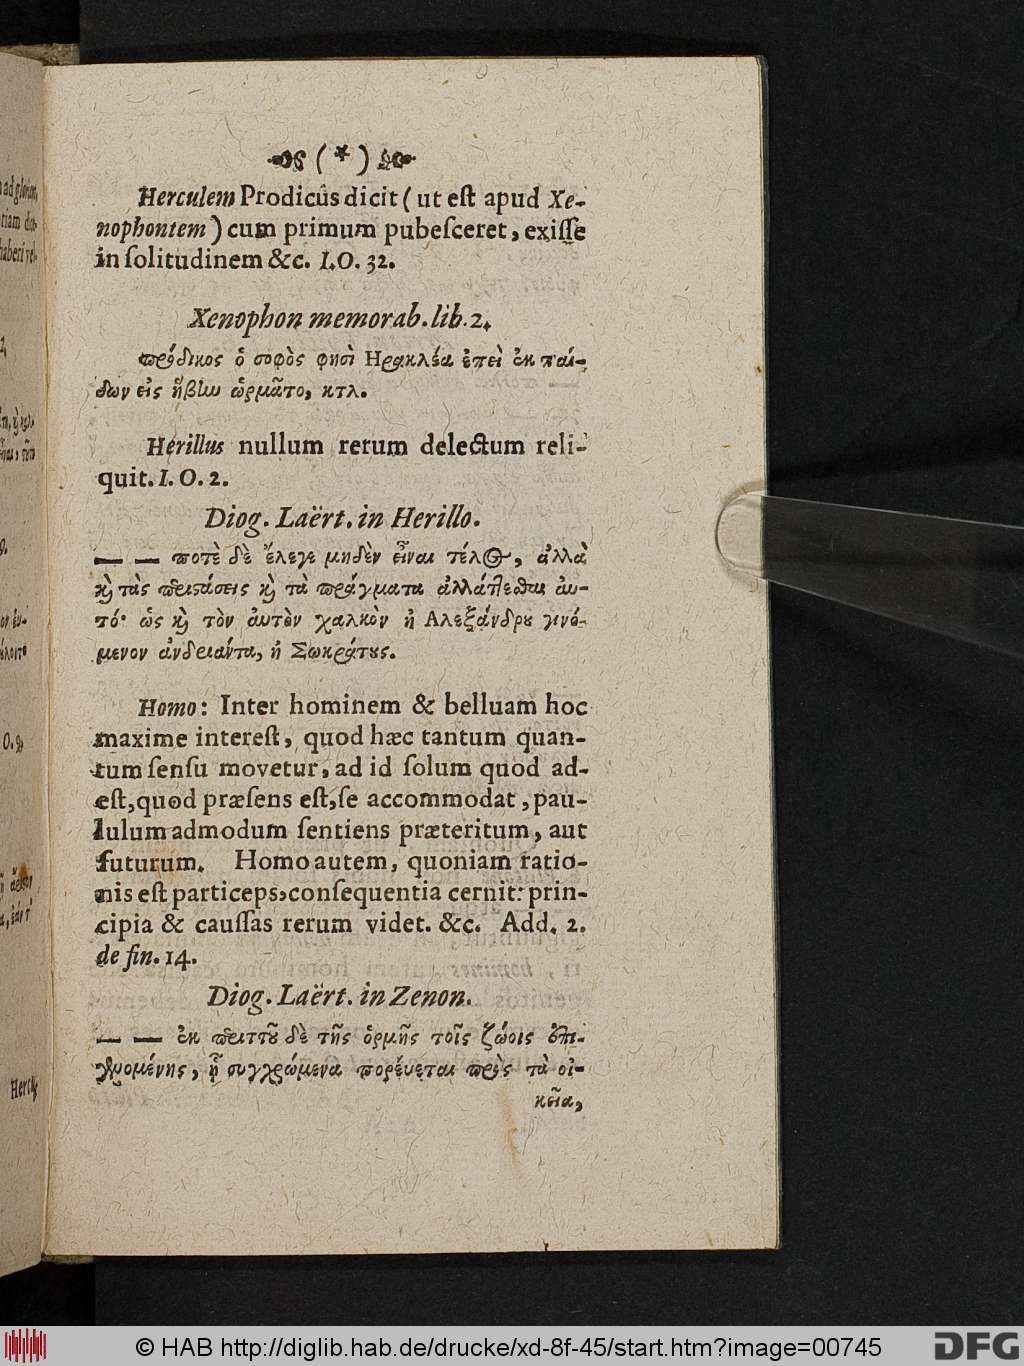 (*)
Herculem Prodicûs dicit (ut est apud Xe-
nophontem) cum primum pubesceret, exisse
in solitudinem &c. 1. O. 32.
Xenophon memorab. lib. 2.
πρόδικος ὁ σοφὸς φησὶ Ηρακλέα ἐπεὶ ἐκ παί-
δων εἰς ἥβην ὡρμᾶτο, κτλ.
Herillus nullum rerum delectum reli-
quit. 1. O. 2.
Diog. Laërt. in Herillo.
— — ποτὲ δὲ ἔλεγε μηδὲν εἶναι τέλος, ἀλλὰ
καὶ τὰς περιστάσεις καὶ τὰ πράγματα ἀλλάττεσθαι ἀυ-
τό· ὡς καὶ τὸν ἀυτὸν χαλκὸν ἢ Αλεξάνδρου γινό-
μενον ἀνδριάντα, ἢ Σωκράτους.
Homo: Inter hominem & belluam hoc
maxime interest, quod hæc tantum quan-
tum sensu movetur, ad id solum quod ad-
est, quod præsens est, se accommodat, pau-
lulum admodum sentiens præteritum, aut
futurum. Homo autem, quoniam ratio-
nis est particeps, consequentia cernit: prin-
cipia & caussas rerum videt. &c. Add. 2.
de fin. 14.
Diog. Laërt. in Zenon.
— — ἐκ περιττοῦ δὲ τῆς ὁρμῆς τοῖς ζώοις ἐπι-
γενομένης, ᾗ συγχρώμενα πορέυεται πρὸς τὰ οἰ-
κεῖα,
© HAB http://diglib.hab.de/drucke/xd-8f-45/start.htm?image=00745
DFG